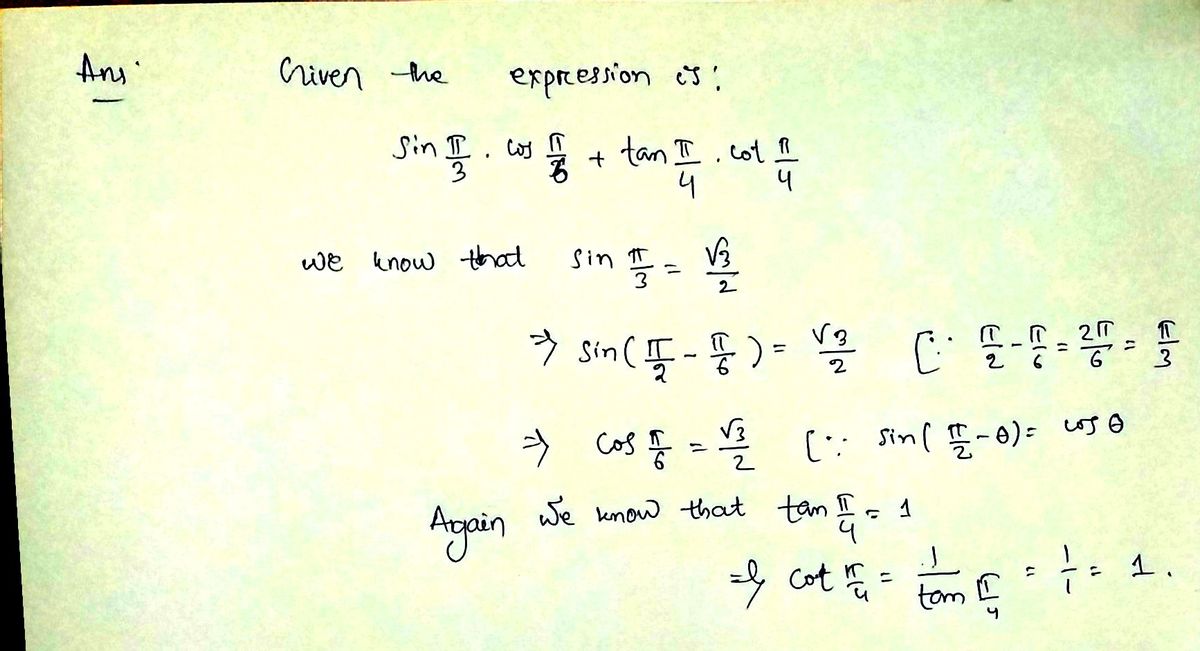 Ans: Given the expression is:
sin π/3 . cos π/6 + tan π/4 . cot π/4
we know that sin π/3 = √3/2
⇒ sin(π/2 - π/6) = √3/2 [∵ π/2 - π/6 = 2π/6 = π/3
⇒ cos π/6 = √3/2 [∵ sin(π/2 - θ) = cos θ
Again we know that tan π/4 = 1
⇒ cot π/4 = 1/tan π/4 = 1/1 = 1.